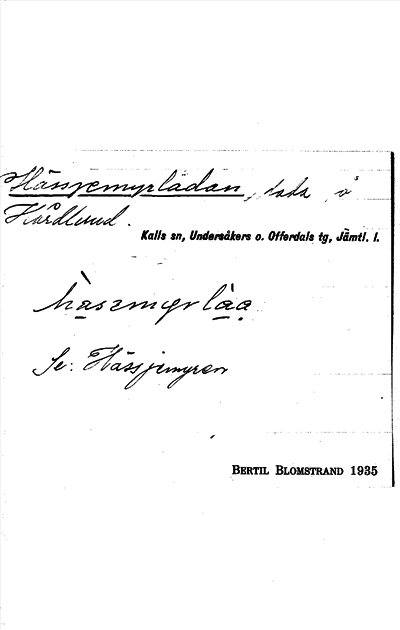 Hässjemyrladan, lada å
Hårdlund.
Kalls sn, Undersåkers o. Offerdals tg, Jämtl. l.
Se: Hässjemyren
BERTIL BLOMSTRAND 1935